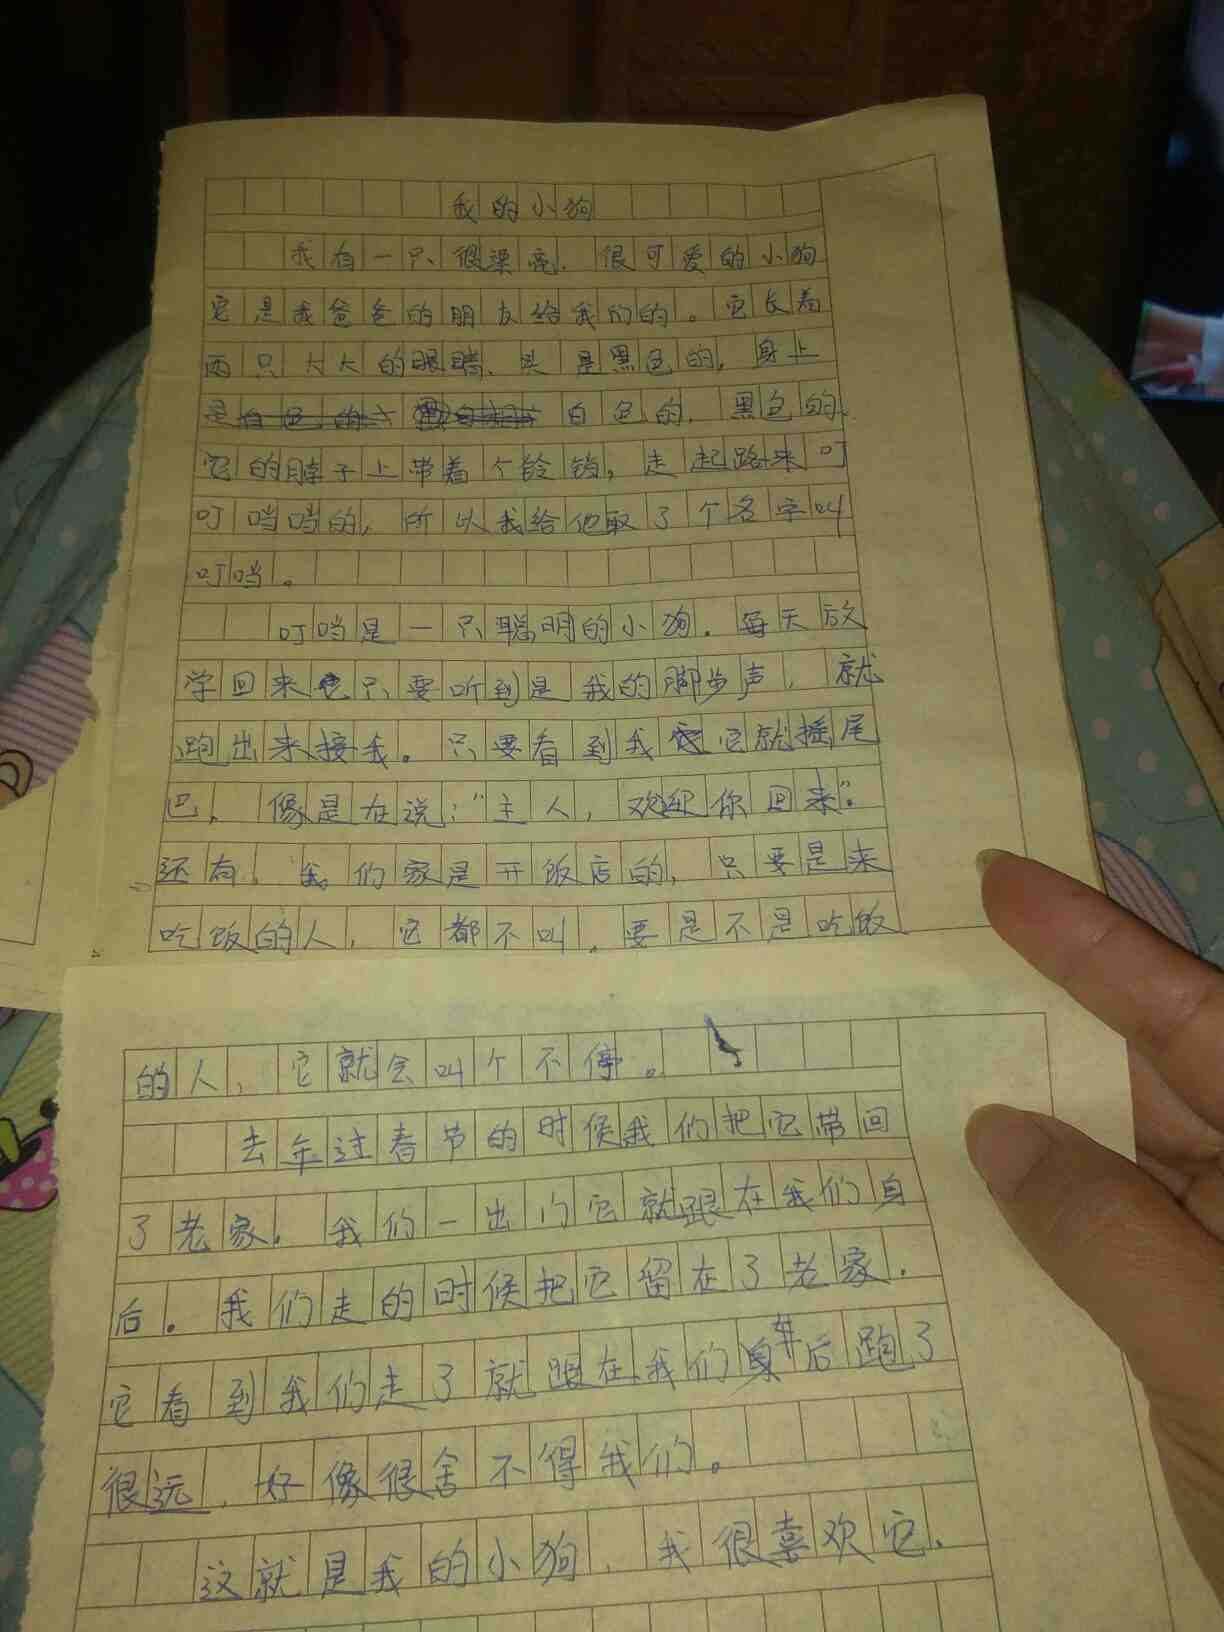 我的小狗
我有一只很漂亮、很可爱的小狗
它是我爸爸的朋友给我们的。它长着
两只大大的眼睛、头是黑色的，身上
是白色的、黑色的、
它的脖子上带着个铃铛，走起路来叮
叮当当的，所以我给他取了个名字叫
叮当。
叮当是一只聪明的小狗。每天放
学回来只要听到是我的脚步声，就
跑出来接我。只要看到我它就摇尾
巴，像是在说：“主人，欢迎你回来”。
还有，我们家是开饭店的，只要是来
吃饭的人，它都不叫，要是不是吃饭
的人，它就会叫个不停。
去年过春节的时候我们把它带回
了老家。我们一出门它就跟在我们身
后。我们走的时候把它留在了老家，
它看到我们走了就跟在我们车后跑了
很远，好像很舍不得我们。
这就是我的小狗，我很喜欢它、